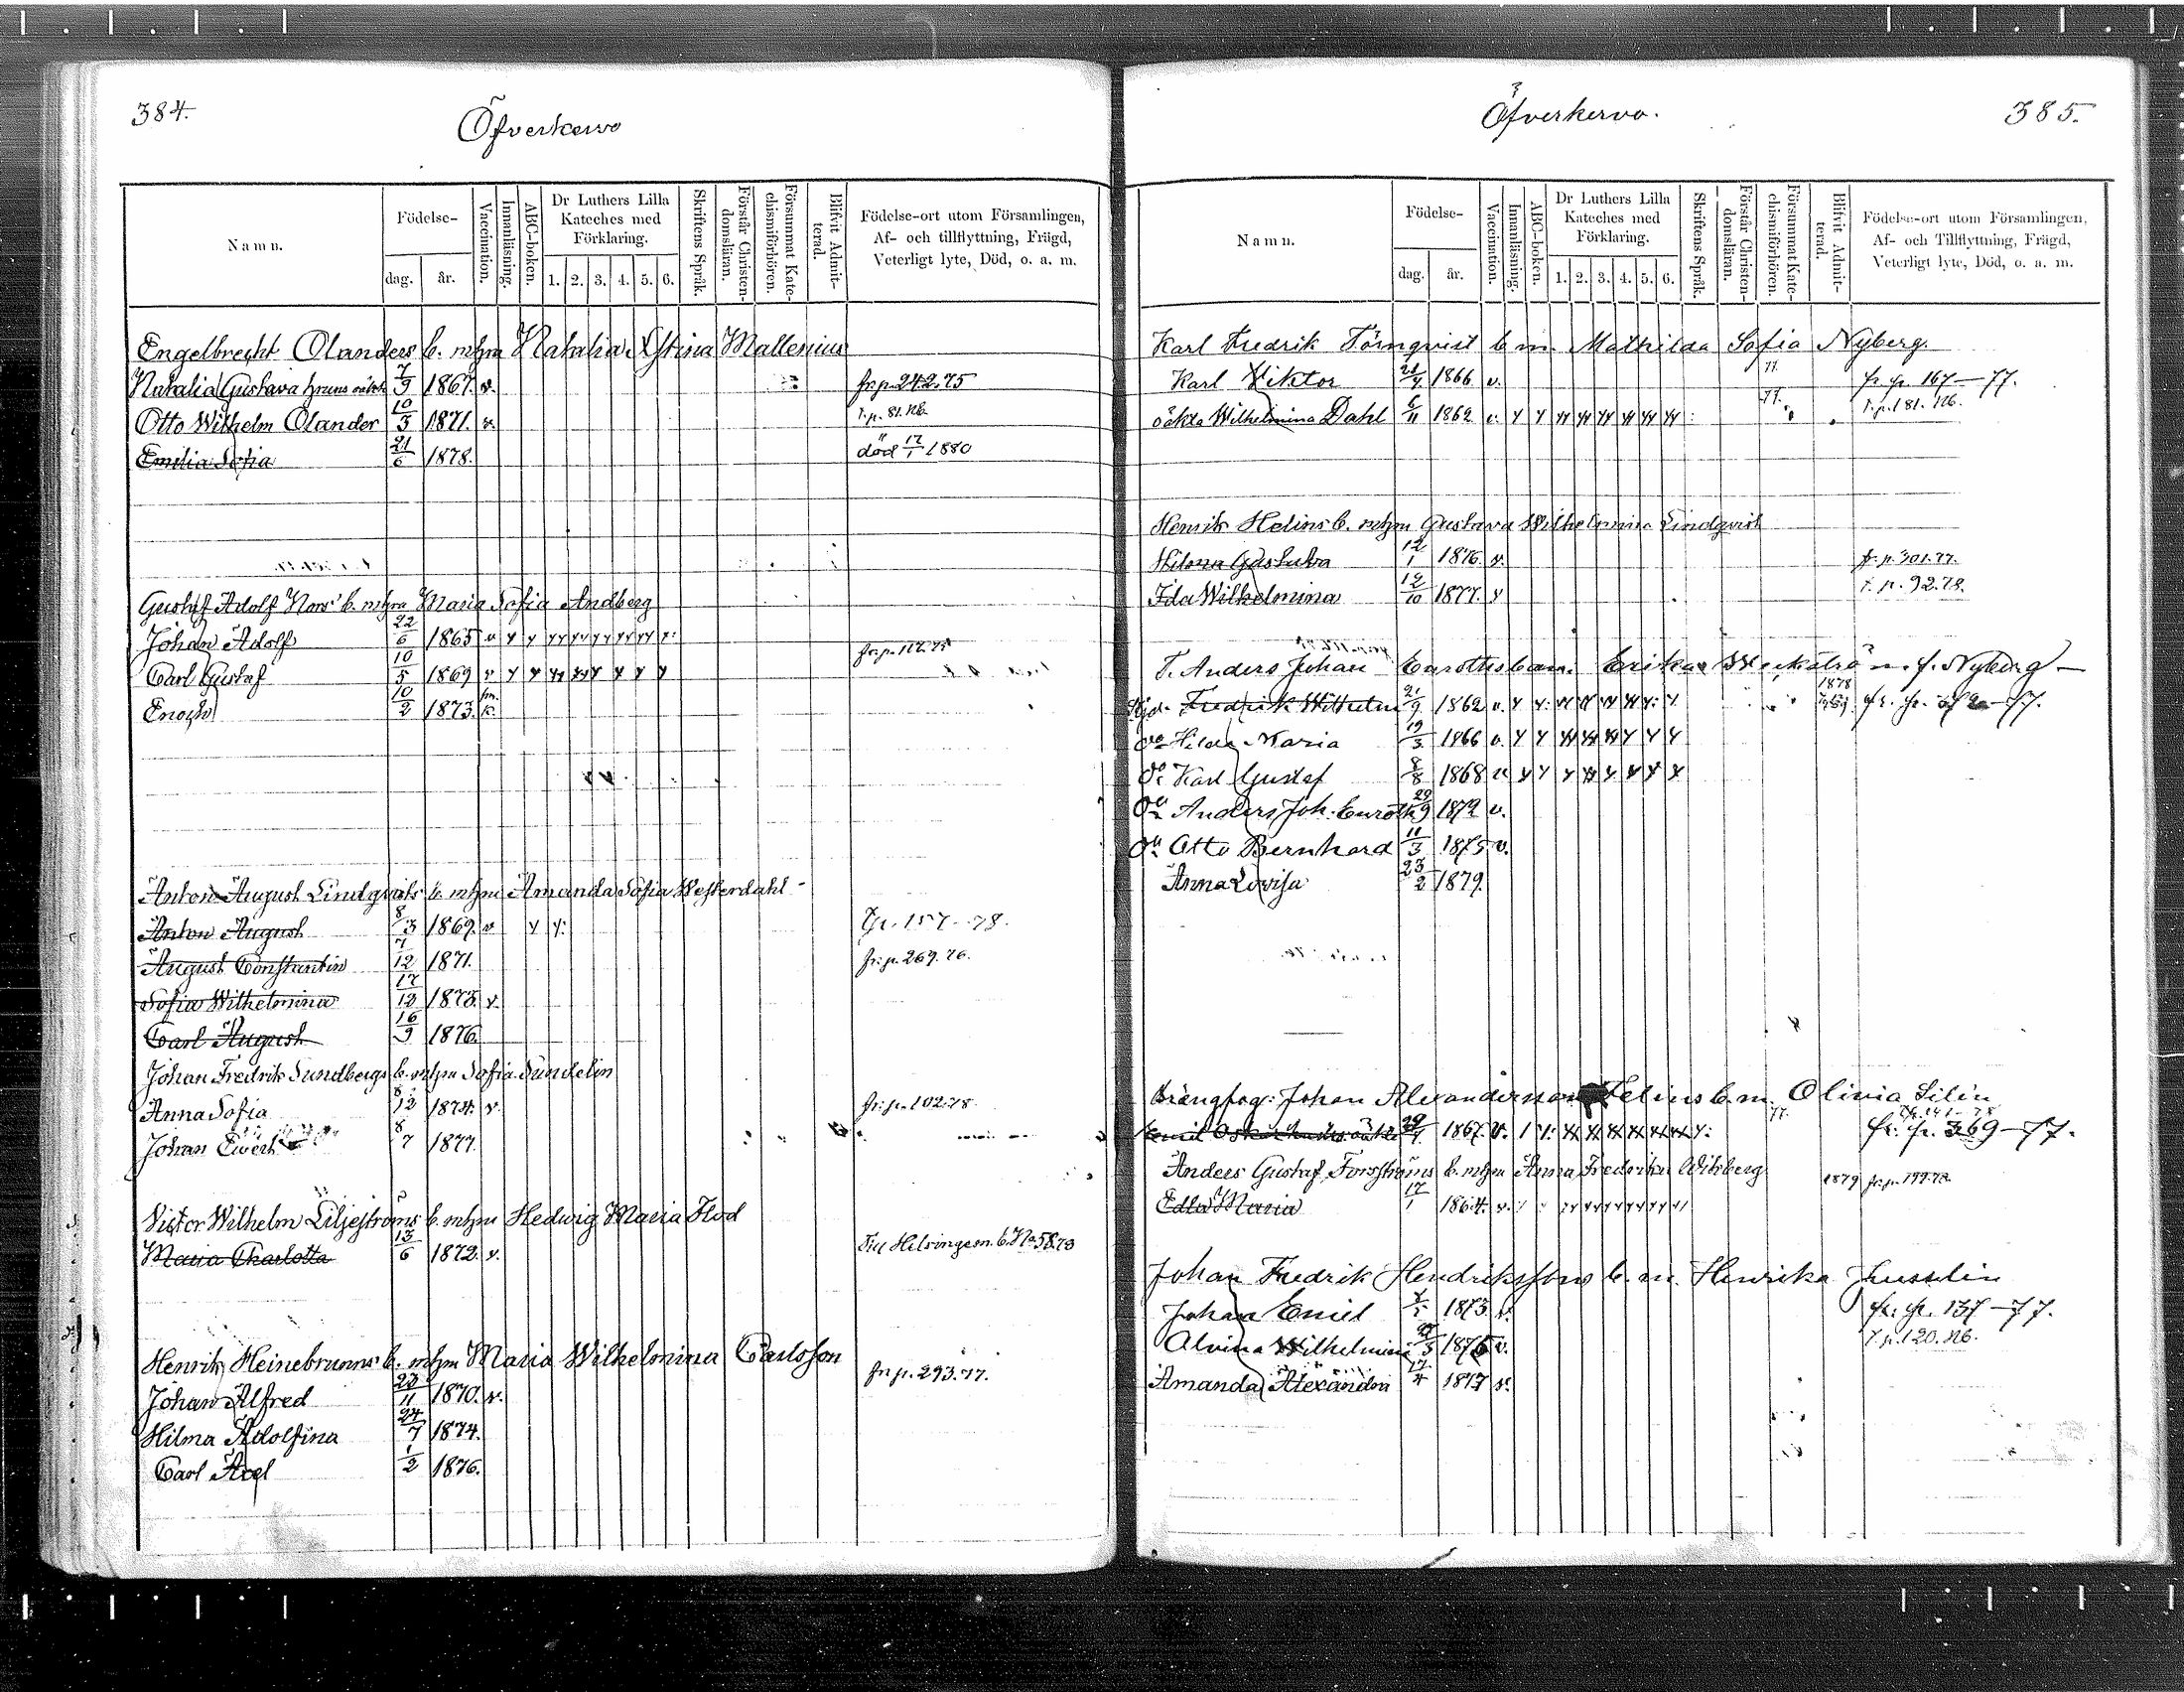 384.
Öfverkervo
Namn.
Födelse-
dag. år.
Vaccination.
Innanläsning.
ABC-boken.
Dr Luthers Lilla Kateches med Förklaring.
1. 2. 3. 4. 5. 6.
Skriftens Språk.
Förstår Christendomsläran.
Försummat Katechismiförhören.
Blifvit Admitterad.
Födelse-ort utom Församlingen,
Af- och tillflyttning, Frägd,
Veterligt lyte, Död, o. a. m.
Engelbrecht Olanders b. m hm Natalia Mallenius
Natalia Gustava 7/9 1867. v. fr. p. 242. 75
Otto Wilhelm Olander 10/3 1871. v. t. p. 81. Nb.
Emilia Sofia 21/6 1878. död 12/1 1880
Gustaf Adolf b. m hm Maria Sofia Andberg
Johan Adolf 22/6 1865 v
Carl Gustaf 10/5 1869 v
Enoch 10/2 1873.
Anton August Lindqvists b. m hm Amanda Sofia Westerdahl
Anton August 8/3 1869. v
August Constantin 7/12 1871. fr. p. 269. 76.
Sofia Wilhelmina 17/12 1873. v.
Carl August 16/9 1876.
Johan Fredrik Sundbergs b. m hm Sofia Sundelin
Anna Sofia 8/12 1874. v. fr. p. 102. 78.
Johan Evert 8/7 1877.
Victor Wilhelm Liljeströms b. m hm Hedwig Maria Flod
Maria Charlotta 13/6 1872. v. Till Helsinge
Henrik Heinebrunns b. m hm Maria Wilhelmina Carlsson
Johan Alfred 23/11 1870. v. fr. p. 293. 77.
Hilma Adolfina 24/7 1874.
Carl Axel 1/2 1876.
Öfverkervo.
385.
Namn.
Födelse-
dag. år.
Vaccination.
Innanläsning.
ABC-boken.
Dr Luthers Lilla Kateches med Förklaring.
1. 2. 3. 4. 5. 6.
Skriftens Språk.
Förstår Christendomsläran.
Försummat Katechismiförhören.
Blifvit Admitterad.
Födelse-ort utom Församlingen,
Af- och Tillflyttning, Frägd,
Veterligt lyte, Död, o. a. m.
Karl Fredrik Törnqvist b m. Mathilda Sofia Nyberg.
Karl Viktor 1866 v. fr. p. 167-77.
oäkta Wilhelmina Dahl 6/11 1862 v. t. p. 181. Nb.
Henrik Helins b. m hm Gustava Wilhelmina Lindqvist
Hilma Gustava 12/1 1876. v. fr. p. 301. 77.
Ida Wilhelmina 12/10 1877. v t. p. 92. 78.
T. Anders Johan Euroths barn. Erika f. Nyberg
Fredrik Wilhelm 21/9 1862 v. 1878
Hilda Maria 19/3 1866 v.
Karl Gustaf 8/8 1868 v
Anders Joh. Euroth 29/9 1872 v.
Otto Bernhard 11/3 1875 v.
Anna Lovisa 23/2 1879.
Johan Alexandersson Felins b. m. Olivia Silin
Emil Oskar 1867. v. fr. p. 369-77.
Anders Gustaf Forsströms b. m hm Anna Fredrika Wikberg
Edla Maria 17/1 1864. v. 1879
Johan Fredrik Hendrikssons b. m. Henrika Jusselin
Johan Emil 1873. v. fr. p. 137-77.
Alvina Wilhelmina v. t. p. 120. Nb.
Amanda Alexandra 17/4 1877 v.